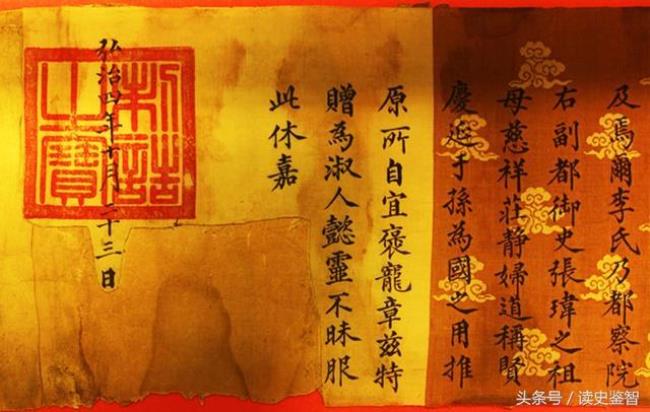 及焉爾李氏乃都察院
右副都御史張瑋之祖
母慈祥莊静婦道稱賢
慶延于孫為國之用推
原所自宜褒寵章兹特
贈為淑人懿靈不昧服
此休嘉
弘治四年十月二十三日
制誥之寶
头条号/读史鉴智